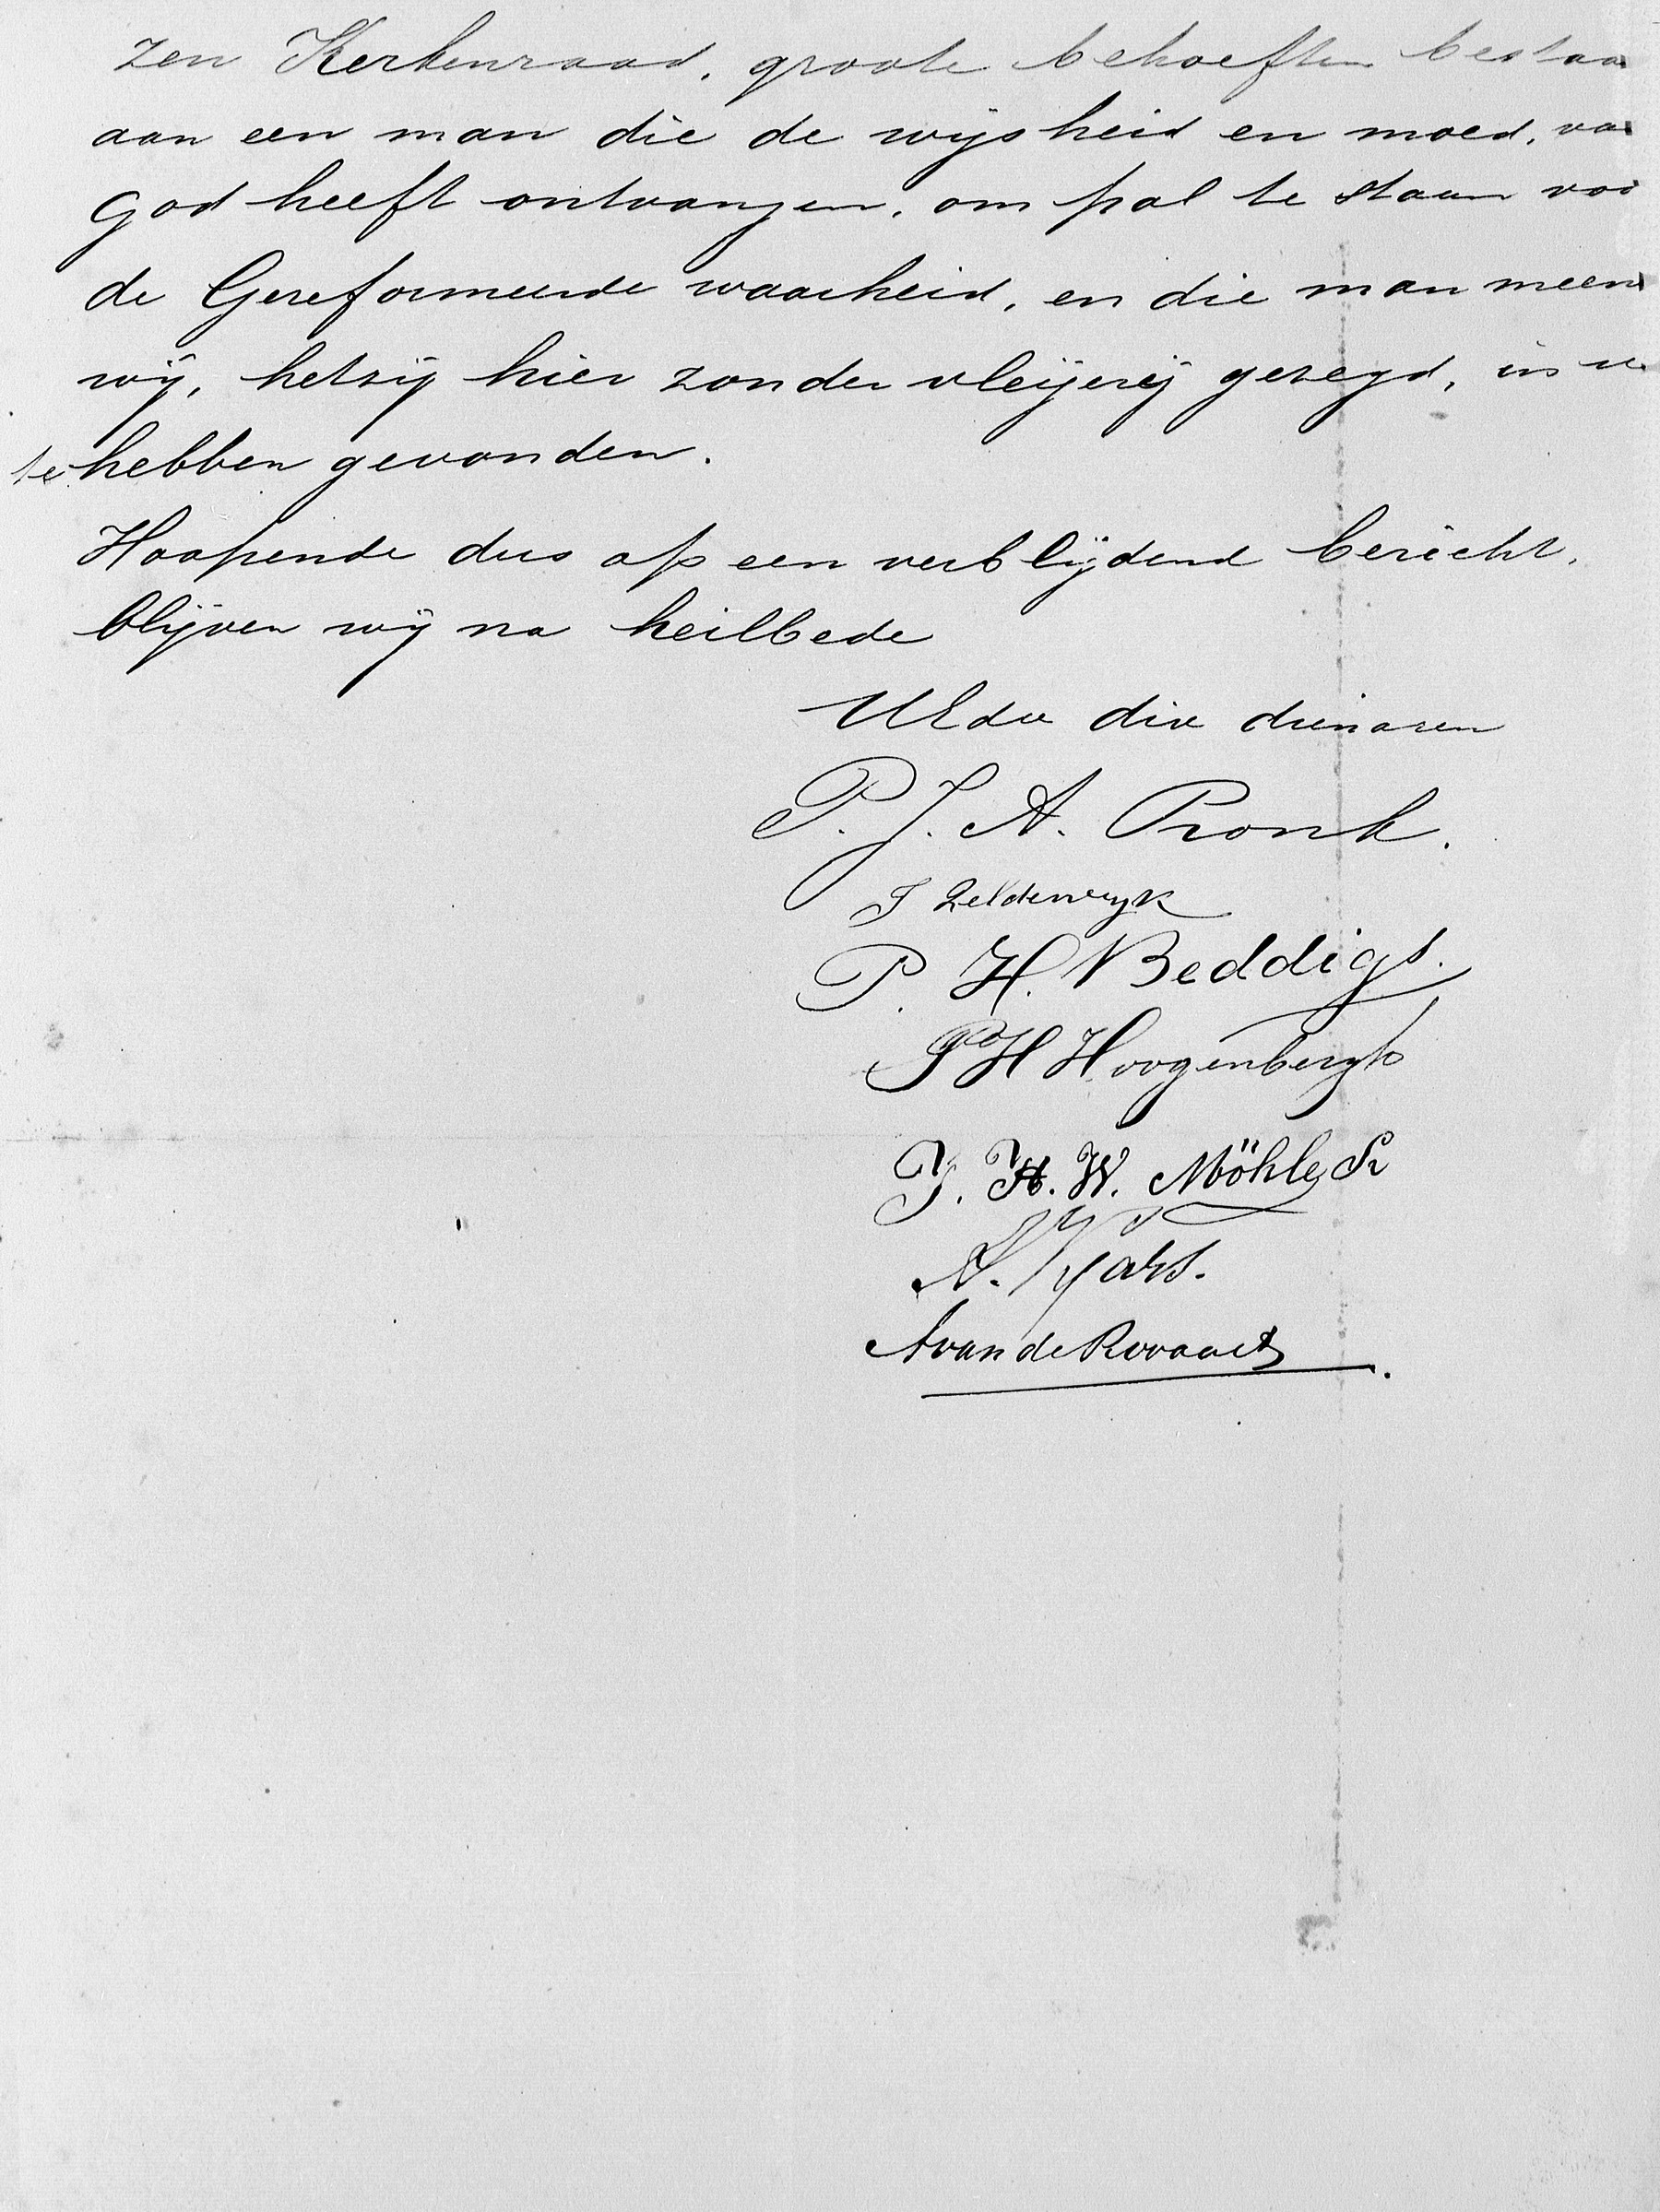 zen Kerkenraad, groote behoeften bestaa
aan een man die de wijsheid en moed, va
God heeft ontvangen, om pal te staan voo
de Gereformeerde waarheid, en die man meen
wij, hetzij hier zonder vleijerij gezegd, in u
te hebben gevonden.
Hoopende dus op een verblijdend bericht,
blijven wij na heilbede
UEdw dw dienaren
P. J. A. Pronk.
J Zeldenryk
P. H. Beddigs.
PH Hoogenbergh
J. H. W. Möhle Sr
A.
A van de